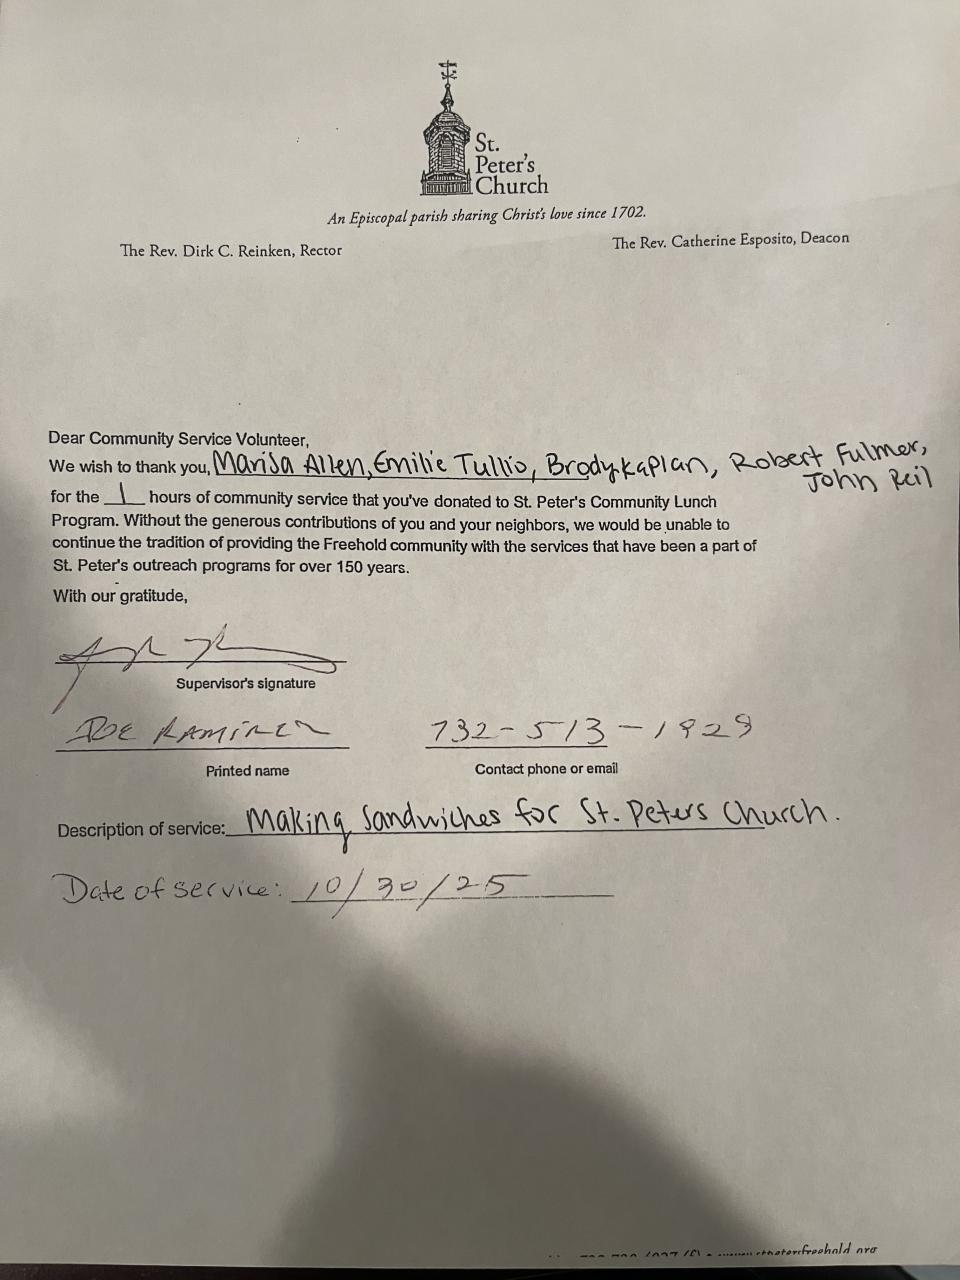 St.
Peter's
Church
An Episcopal parish sharing Christ's love since 1702.
The Rev. Dirk C. Reinken, Rector
The Rev. Catherine Esposito, Deacon
Dear Community Service Volunteer,
We wish to thank you, Marisa Allen, Emilie Tullio, Brody Kaplan, Robert Fulmer,
John Reil
for the 1 hours of community service that you've donated to St. Peter's Community Lunch
Program. Without the generous contributions of you and your neighbors, we would be unable to
continue the tradition of providing the Freehold community with the services that have been a part of
St. Peter's outreach programs for over 150 years.
With our gratitude,
Supervisor's signature
JOE RAMIREZ 732-513-1928
Printed name Contact phone or email
Description of service: Making Sandwiches for St. Peters Church.
Date of service: 10/30/25